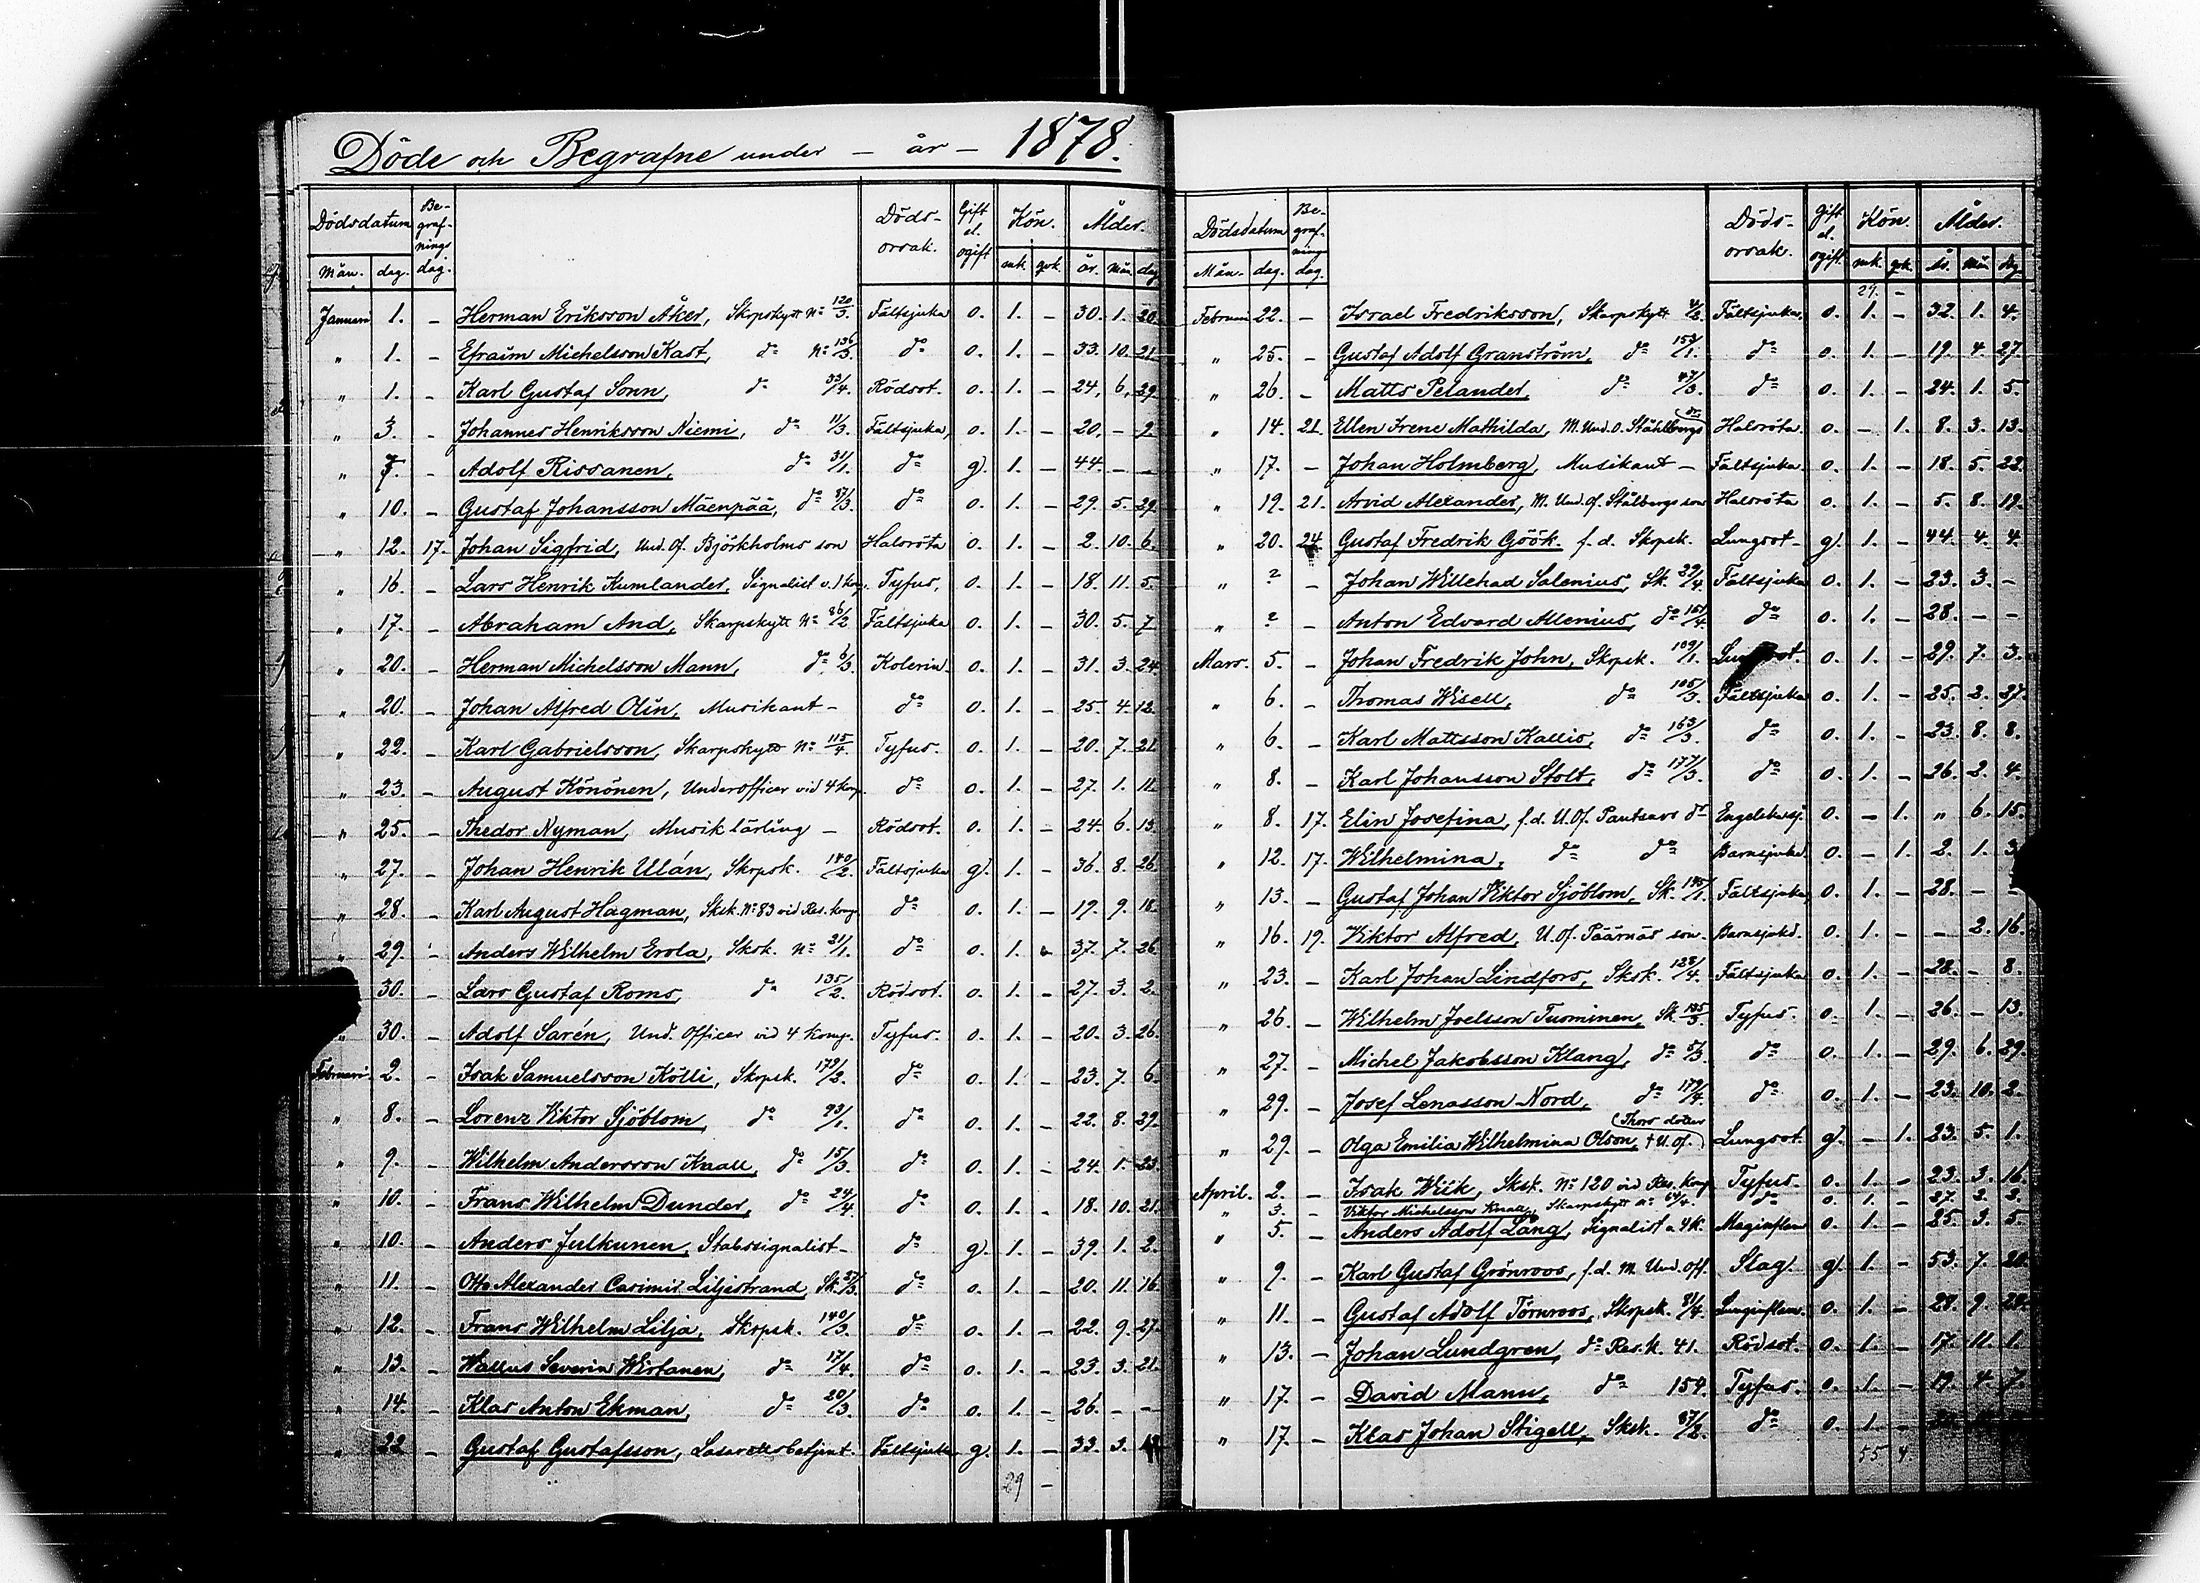 Döde och Begrafne under – år – 1878.
Dödsdatum Be-grafnings dag. Döds-orsak. Gift el. ogift Kön. Ålder.
Mån. dag. mk. qvk. år. mån. dag
Januari 1. – Herman Eriksson Åker, Skrpskytt No 120/3. Fältsjuka o. 1. – 30. 1. 20.
" 1. – Efraim Michelsson Kast, do No 136/3. do o. 1. – 33. 10. 21.
" 1. – Karl Gustaf Sonn, do 33/4. Rödsot. o. 1. – 24. 6. 29.
" 3. – Johannes Henriksson Niemi, do 11/3. Fältsjuka, o. 1. – 20. – 2.
" 7. – Adolf Rissanen, do 31/1. do g. 1. – 44. – –
" 10. – Gustaf Johansson Mäenpää, do 87/3. do o. 1. – 29. 5. 29.
" 12. 17. Johan Sigfrid, Und. Of. Björkholms son Halsröta o. 1. – 2. 10. 6.
" 16. – Lars Henrik Kumlander, Signalist v. 1 komp. Tyfus, o. 1. – 18. 11. 5.
" 17. – Abraham And, Skarpskytt No 86/2 Fältsjuka o. 1. – 30. 5. 7
" 20. – Herman Michelsson Mann, do 6/3. Kolerin. o. 1. – 31. 3. 24.
" 20. – Johan Alfred Olin, Musikant – do o. 1. – 25. 4. 12.
" 22. – Karl Gabrielsson, Skarpskytt No 115/4. Tyfus. o. 1. – 20. 7. 21.
" 23. – August Könönen, Underofficer vid 4 komp. do o. 1. – 27. 1. 11.
" 25. – Thedor Nyman, Musiklärling – Rödsot. o. 1. – 24. 6. 13.
" 27. – Johan Henrik Ulán, Skrpsk. 140/2. Fältsjuka g. 1. – 36. 8. 26.
" 28. – Karl August Hagman, Sksk. No 83 vid Res. komp. do o. 1. – 19. 9. 18.
" 29. – Anders Wilhelm Erola, Sksk. No 21/1. do o. 1. – 37. 7. 26.
30. – Lars Gustaf Roms, do 135/2. Rödsot. o. 1. – 27. 3. 2.
" 30. – Adolf Sarén, Und. Officer vid 4 komp. Tyfus. o. 1. – 20. 3. 26.
Februari 2. – Isak Samuelsson Kölli, Skrpsk. 173/2. do o. 1. – 23. 7. 6.
" 8. – Lorenz Viktor Sjöblom, do 93/1. do o. 1. – 22. 8. 29.
" 9. – Wilhelm Andersson Knall, do 15/3. do o. 1. – 24. 1. 23.
" 10. – Frans Wilhelm Dunder, do 24/4. do o. 1. – 18. 10. 21.
" 10. – Anders Julkunen, Stabssignalist – do g. 1. – 39. 1. 2.
" 11. – Otto Alexander Casimir Liljestrand, Sk. 57/3. do o. 1. – 20. 11. 16.
" 12. – Frans Wilhelm Lilja, Skrpsk. 140/3. do o. 1. – 22. 9. 27.
" 13. – Wallus Severin Wirtanen, do 17/4. do o. 1. – 23. 3. 21.
" 14. – Klas Anton Ekman, do 20/3. do o. 1. – 26. – –
" 22 – Gustaf Gustafsson, Lasarettsbetjent. Fältsjuka g. 1. – 33. 3.
29 –
Dödsdatum Be-graf-nings dag. Döds-orsak. Gift el. ogift. Kön. Ålder.
Mån. dag. mk. qvk. år. mån. dag.
29. –
Februari 22. – Israel Fredriksson, Skarpskytt 4/3. Fältsjuka. o. 1. – 32. 1. 4.
" 25. – Gustaf Adolf Granström, do 153/1. do o. 1. – 19. 4. 27.
" 26. – Matts Pelander, do 47/3. do o. 1. – 24. 1. 5.
" 14. 21. Ellen Irene Mathilda, M. Und. O. Ståhlbergs dr Halsröta. o. – 1. 8. 3. 13.
" 17. – Johan Holmberg, Musikant – Fältsjuka. o. 1. – 18. 5. 22.
" 19. 21. Arvid Alexander, M. Und. of. Stålbergs son Halsröta o. 1. – 5. 8. 19.
" 20. 24 Gustaf Fredrik Göök. f. d. Skpsk. Lungsot – g. 1. – 44. 4. 4.
" ? – Johan Willehad Salenius, Sk. 29/4. Fältsjuka o. 1. – 23. 3. –
" ? – Anton Edvard Allenius, do 161/4. do o. 1. – 28. – –
Mars. 5. – Johan Fredrik John, Skrpsk. 109/1. o. 1. – 29. 7. 3.
" 6. – Thomas Wisell, do 105/3. Fältsjuka o. 1. – 25. 2. 27.
" 6. – Karl Mattsson Kallio, do 163/3. do o. 1. – 23. 8. 8.
" 8. – Karl Johansson Stolt, do 177/3. do o. 1. – 26. 2. 4.
" 8. 17. Elin Josefina, f. d. U. Of. Pantsars dr Engelska sj. o. – 1. " 6. 15.
" 12. 17. Wilhelmina, do do Barnsjukd. o. – 1. 2. 1. 3.
" 13. – Gustaf Johan Viktor Sjöblom, Sk. 145/1. Fältsjuka o. 1. – 28. – –
" 16. 19. Viktor Alfred, U. of. Päärnäs son. Barnsjukd. o. 1. – – 2. 16.
" 23. – Karl Johan Lindfors, Sksk. 128/4. Fältsjuka o. 1. – 28. – 8.
" 26. – Wilhelm Joelsson Tuominen, Sk. 135/3. Tyfus. o. 1. – 26. – 13.
" 27. – Michel Jakobsson Klang, do 5/3. do o. 1. – 29. 6. 29.
" 29. – Josef Lenasson Nord, do 179/4. do o. 1. – 23. 10. 2.
" 29. – Olga Emilia Wilhelmina Olson, † U. of. Thors dotter Lungsot. g. – 1. 23. 5. 1.
April. 2. – Isak Wiik, Sksk. No 120 vid Res. komp. Tyfus. o. 1. – 23. 3. 16.
" 3. – Viktor Michelsson Knall, Skarpskytt No 64/4. do o. 1. – 27. 2. 2.
" 5. – Anders Adolf Lång, Signalist v. 4 K. Maginflam. o. 1. – 25. 3. 5.
" 9. – Karl Gustaf Grönroos, f. d. M. Und. off. Slag g. 1. – 53. 7. 20.
" 11. – Gustaf Adolf Törnroos, Skrpsk. 81/4. Lunginflam. o. 1. – 28. 9. 20.
" 13. – Johan Lundgren, do Res. K. 41. Rödsot. o. 1. – 17. 11. 1.
" 17. – David Mann, do 154. Tyfus. o. 1. – 19. 4. 7
" 17. – Klas Johan Stigell, Sksk. 87/2. do o. 1. –
55 4.